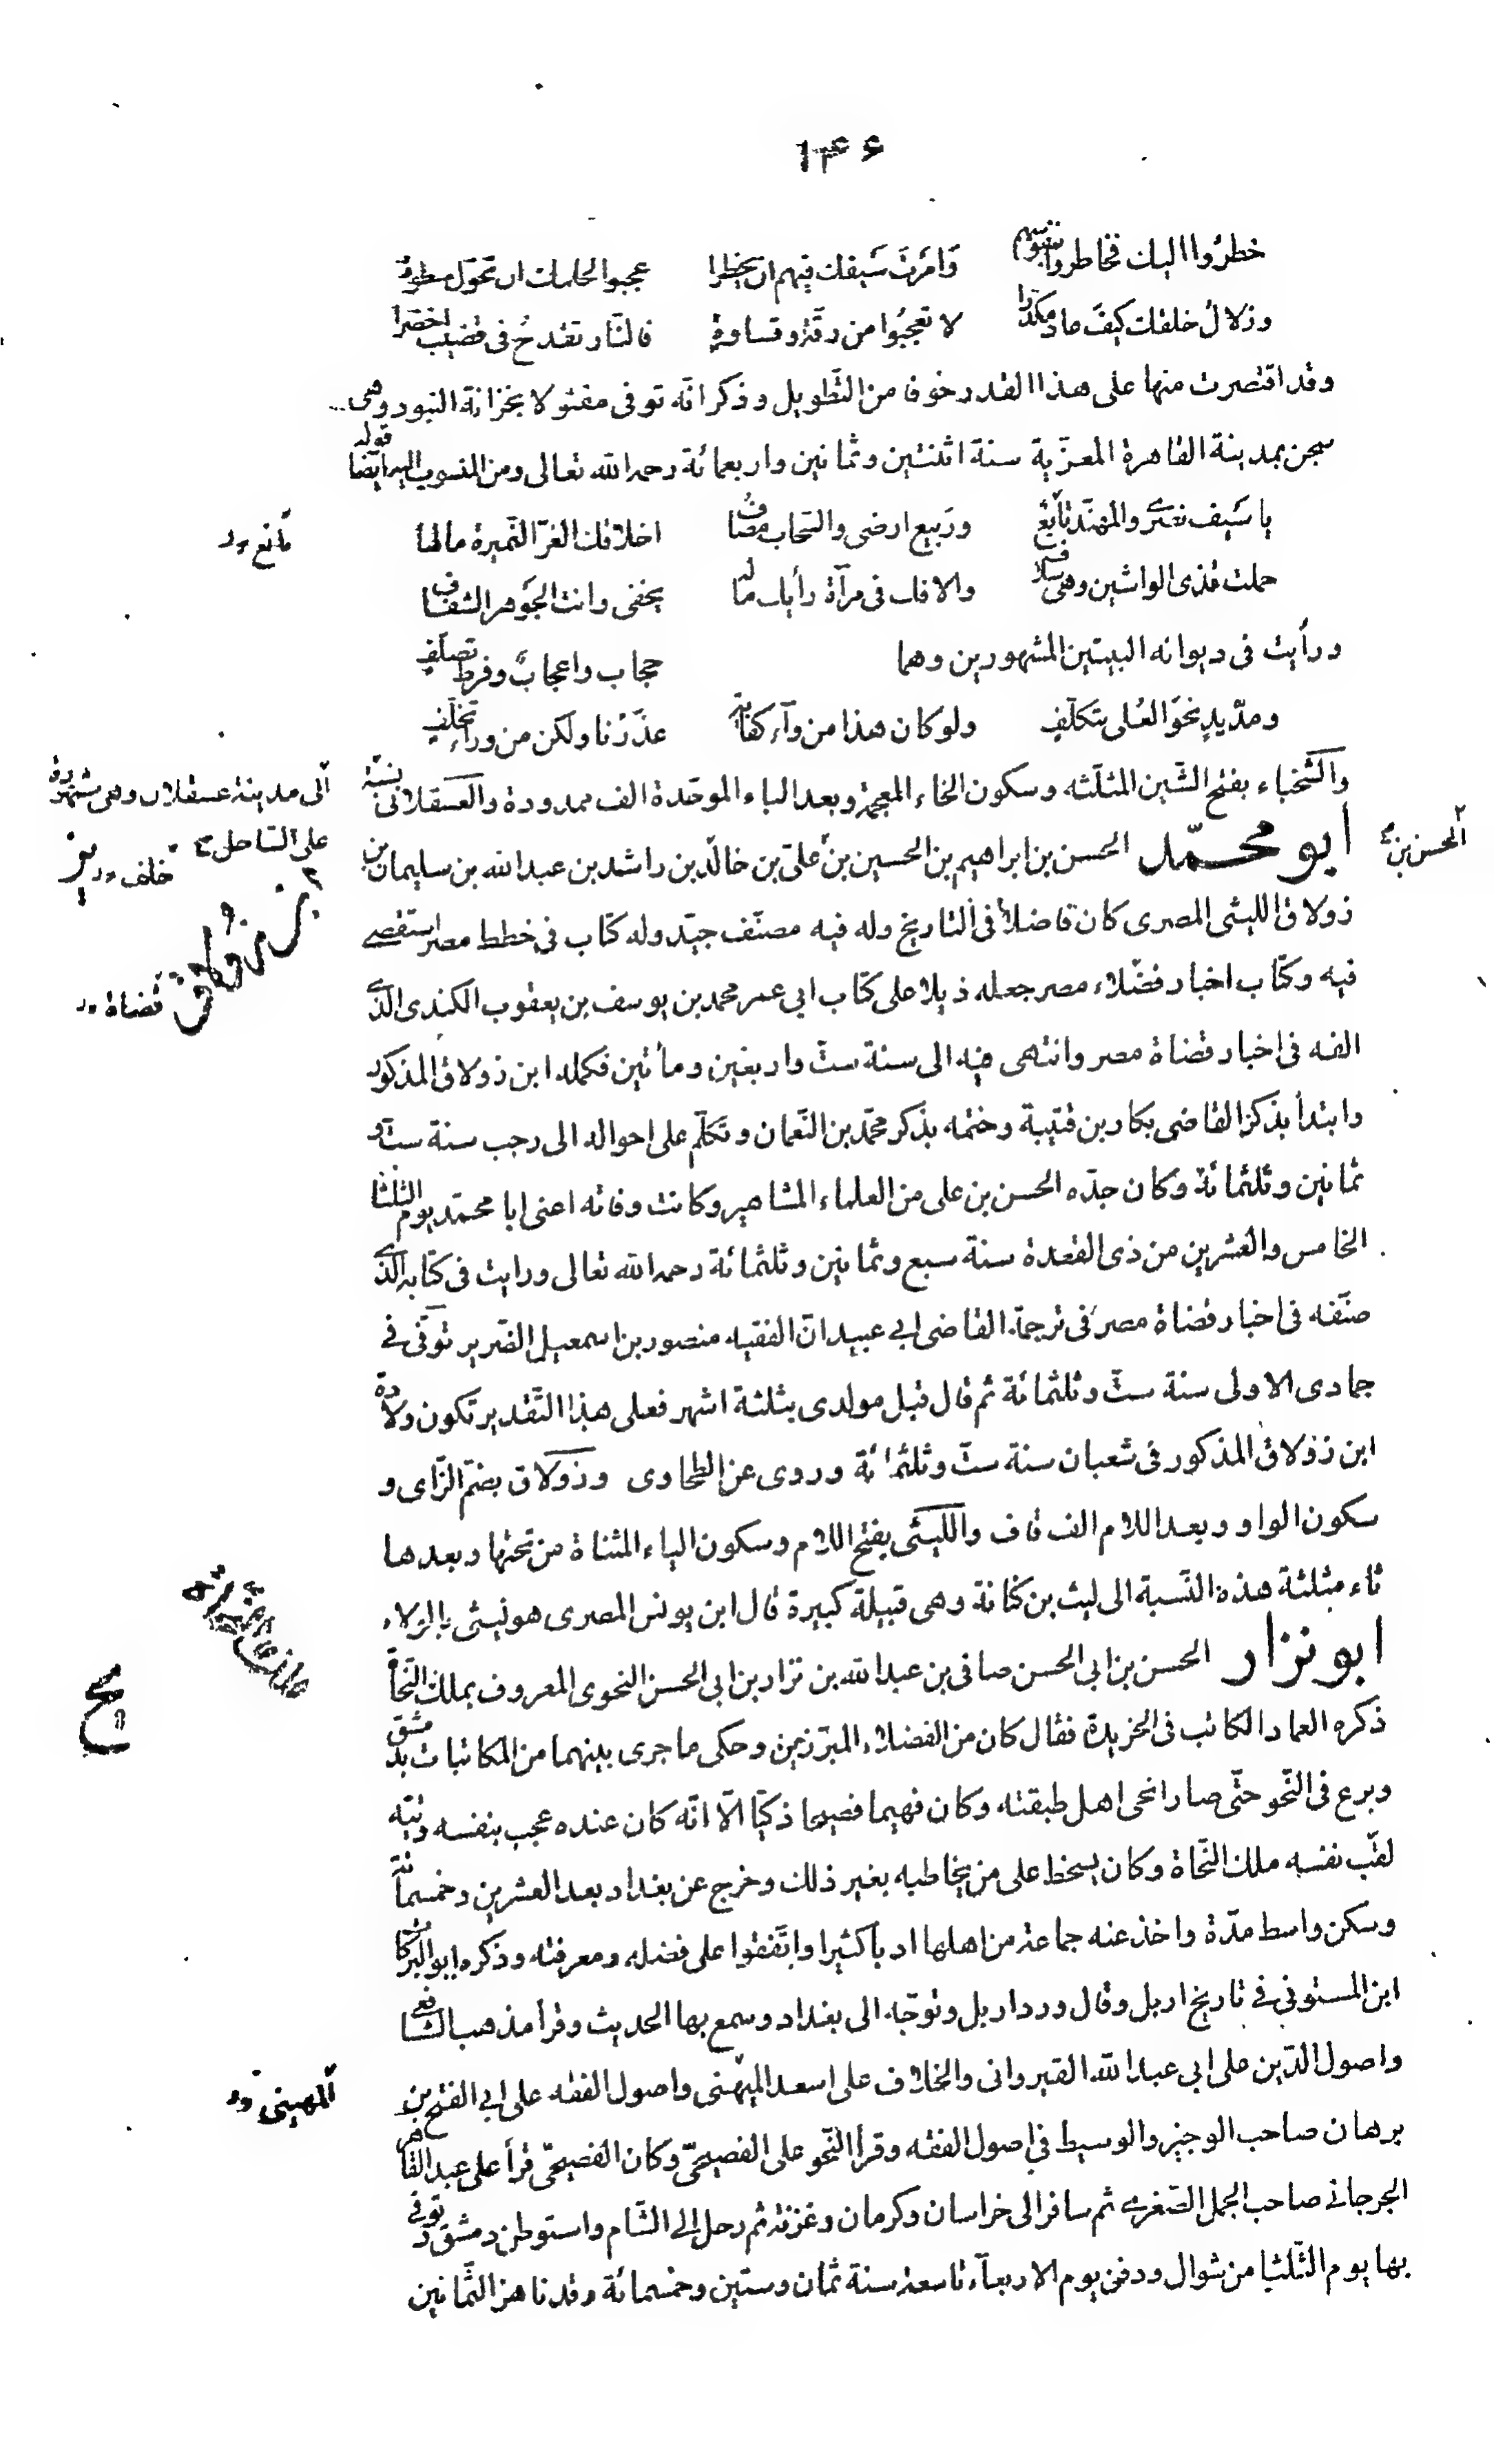 ۱۴۶
خطروا اليك فخاطروا بنفوسهم وامرت سيفك فيهم ان يخطرا عجبوا لحلمك ان تحول سطوة
وزلال خلقك كيف عاد مكدرا لا تعجبوا من رقة وقساوة فالنار تقدح فى قضيب اخضرا
وقد اقتصرت منها على هذا القدر خوفا من التطويل وذكر انه توفى مقتولا بخزانة البنود وهى
سجن بمدينة القاهرة المعزية سنة اثنتين وثمانين واربعمائة رحمه الله تعالى ومن المنسوب اليه ايضا قوله
يا سيف نصرى والمهند تابع وربيع ارضى والسحاب مصاف اخلاقك الغر النميرة مالها
مانع
حملت قذى الواشين وهى سلاف والافك فى مرآة رأيك ماله يخفى وانت الجوهر الشفاف
ورأيت فى ديوانه البيتين المشهورين وهما حجاب واعجاب وفرط تصلف
ومد يد نحو العلى بتكلف ولو كان هذا من وراء كفاية عذرنا ولكن من وراء تخلف
والشخباء بفتح الشين المثلثه وسكون الخاء المعجمة وبعد الباء الموحدة الف ممدودة والعسقلانى نسبة
الى مدينة عسقلان وهى مشهورة
على الساحل
ابو محمد الحسن بن ابراهيم بن الحسين بن على بن خالد بن راشد بن عبد الله بن سليمان بن
الحسن بن
خلف
زولاق الليثى المصرى كان فاضلا فى التاريخ وله فيه مصنف جيد وله كتاب فى خطط مصر استقصى
ابن زولاق
فيه وكتاب اخبار فضلاء مصر جعله ذيلا على كتاب ابى عمر محمد بن يوسف بن يعقوب الكندى الذى
قضاة
الفه فى اخبار قضاة مصر وانتهى فيه الى سنة ست واربعين ومأتين فكمله ابن زولاق المذكور
وابتدأ بذكر القاضى بكار بن قتيبة وختمه بذكر محمد بن النعمان وتكلم على احواله الى رجب سنة ست و
ثمانين وثلثمائة وكان جده الحسن بن على من العلماء المشاهير وكانت وفاته اعنى ابا محمد يوم الثلثا
الخامس والعشرين من ذى القعدة سنة سبع وثمانين وثلثمائة رحمه الله تعالى ورايت فى كتابه الذى
صنفه فى اخبار قضاة مصر فى ترجمة القاضى ابى عبيد ان الفقيه منصور بن اسمعيل الضرير توفى فى
جمادى الاولى سنة ست وثلثمائة ثم قال قبل مولدى بثلثة اشهر فعلى هذا التقدير تكون ولادة
ابن زولاق المذكور فى شعبان سنة ست وثلثمائة وروى عن الطحاوى وزولاق بضم الزاى و
سكون الواو وبعد اللام الف قاف والليثى بفتح اللام وسكون الياء المثناة من تحتها وبعدها
ثاء مثلثة هذه النسبة الى ليث بن كنانة وهى قبيلة كبيرة قال ابن يونس المصرى هو ليثى بالولاء
ابو نزار الحسن بن ابى الحسن صافى بن عبد الله بن نزار بن ابى الحسن النحوى المعروف بملك النحاة
ذكره العماد الكاتب فى الخريدة فقال كان من الفضلاء المبرزين وحكى ما جرى بينهما من المكاتبات بدمشق
وبرع فى النحو حتى صار انحى اهل طبقته وكان فهيما فصيحا ذكيا الا انه كان عنده عجب بنفسه وتيه
لقب نفسه ملك النحاة وكان يسخط على من يخاطبه بغير ذلك وخرج عن بغداد بعد العشرين وخمسمائة
وسكن واسط مدة واخذ عنه جماعة من اهلها ادبا كثيرا واتفقوا على فضله ومعرفته وذكره ابو البركات
ابن المستوفى فى تاريخ اربل وقال ورد اربل وتوجه الى بغداد وسمع بها الحديث وقرأ مذهب الشافعى
واصول الدين على ابى عبد الله القيروانى والخلاف على اسعد الميهنى واصول الفقه على ابى الفتح بن
المهينى
برهان صاحب الوجيز والوسيط فى اصول الفقه وقرأ النحو على الفصيحى وكان الفصيحى قرأ على عبد القاهر
الجرجانى صاحب الجمل الصغرى ثم سافر الى خراسان وكرمان وغزنة ثم رحل الى الشام واستوطن دمشق وتوفى
بها يوم الثلثا من شوال ودفن يوم الاربعاء تاسعه سنة ثمان وستين وخمسمائة وقد ناهز الثمانين